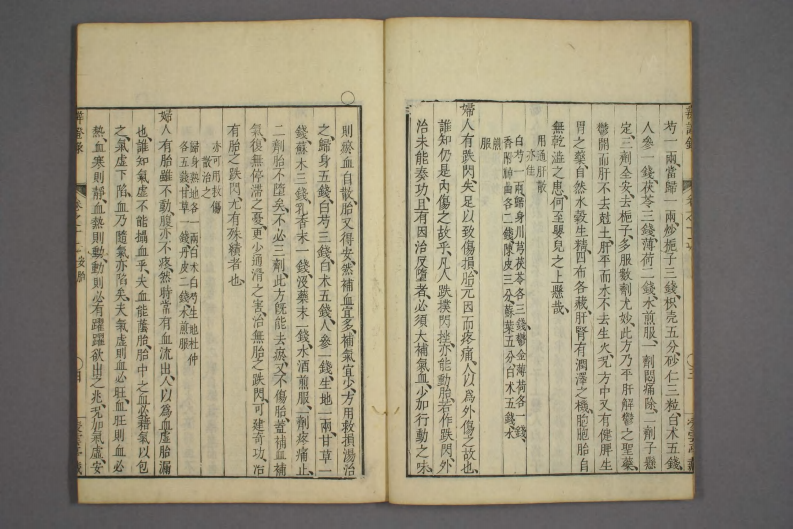 芍一兩當歸一兩炒梔子三錢枳壳五分砂仁三粒白术五錢
人參一錢茯苓三錢薄荷二錢水煎服一劑悶痛除二劑子懸
定三劑全安去梔子多服數劑尤妙此方乃平肝解鬱之聖藥
鬱開而肝不去尅土肝平而木不去生火况方中又有健脾生
胃之藥自然水穀生精四布各藏肝腎有潤澤之機胞胎自
無乾澁之患何至嬰兒之上懸哉
用通肝散
亦佳
白芍一兩歸身川芎茯苓各三錢鬱金薄荷各一錢
香附神曲各二錢陳皮三分蘇葉五分白术五錢水
煎
服
婦人有跌閃失足以致傷損胎元因而疼痛人以為外傷之故也
誰知仍是內傷之故乎凡人跌撲閃挫亦能動胎若作跌閃外
治未能奏功且有因治反墮者必須大補氣血少加行動之味
則瘀血自散胎又得安然補血宜多補氣宜少方用救損湯治
之歸身五錢白芍三錢白术五錢人參一錢生地一兩甘草一
錢蘇木三錢乳香末一錢没藥末一錢水酒煎服一劑疼痛止
二劑胎不墮矣不必三劑此方旣能去瘀又不傷胎蓋補血補
氣復無停滯之憂更少通滑之害治無胎之跌閃可建奇功治
有胎之跌閃尤有殊精者也
亦可用救傷
散治之
歸身熟地各一兩白术白芍生地杜仲
各五錢甘草一錢丹皮二錢水煎服
婦人有胎雖不動腹亦不疼然時常有血流出人以為血虛胎漏
也誰知氣虛不能攝血乎夫血能蔭胎胎中之血必藉氣以包
之氣虛下陷血乃隨氣亦陷矣夫氣虛則血必旺血旺則血必
熱血寒則靜血熱則動動則必有躍躍欲出之兆况加氣虛安